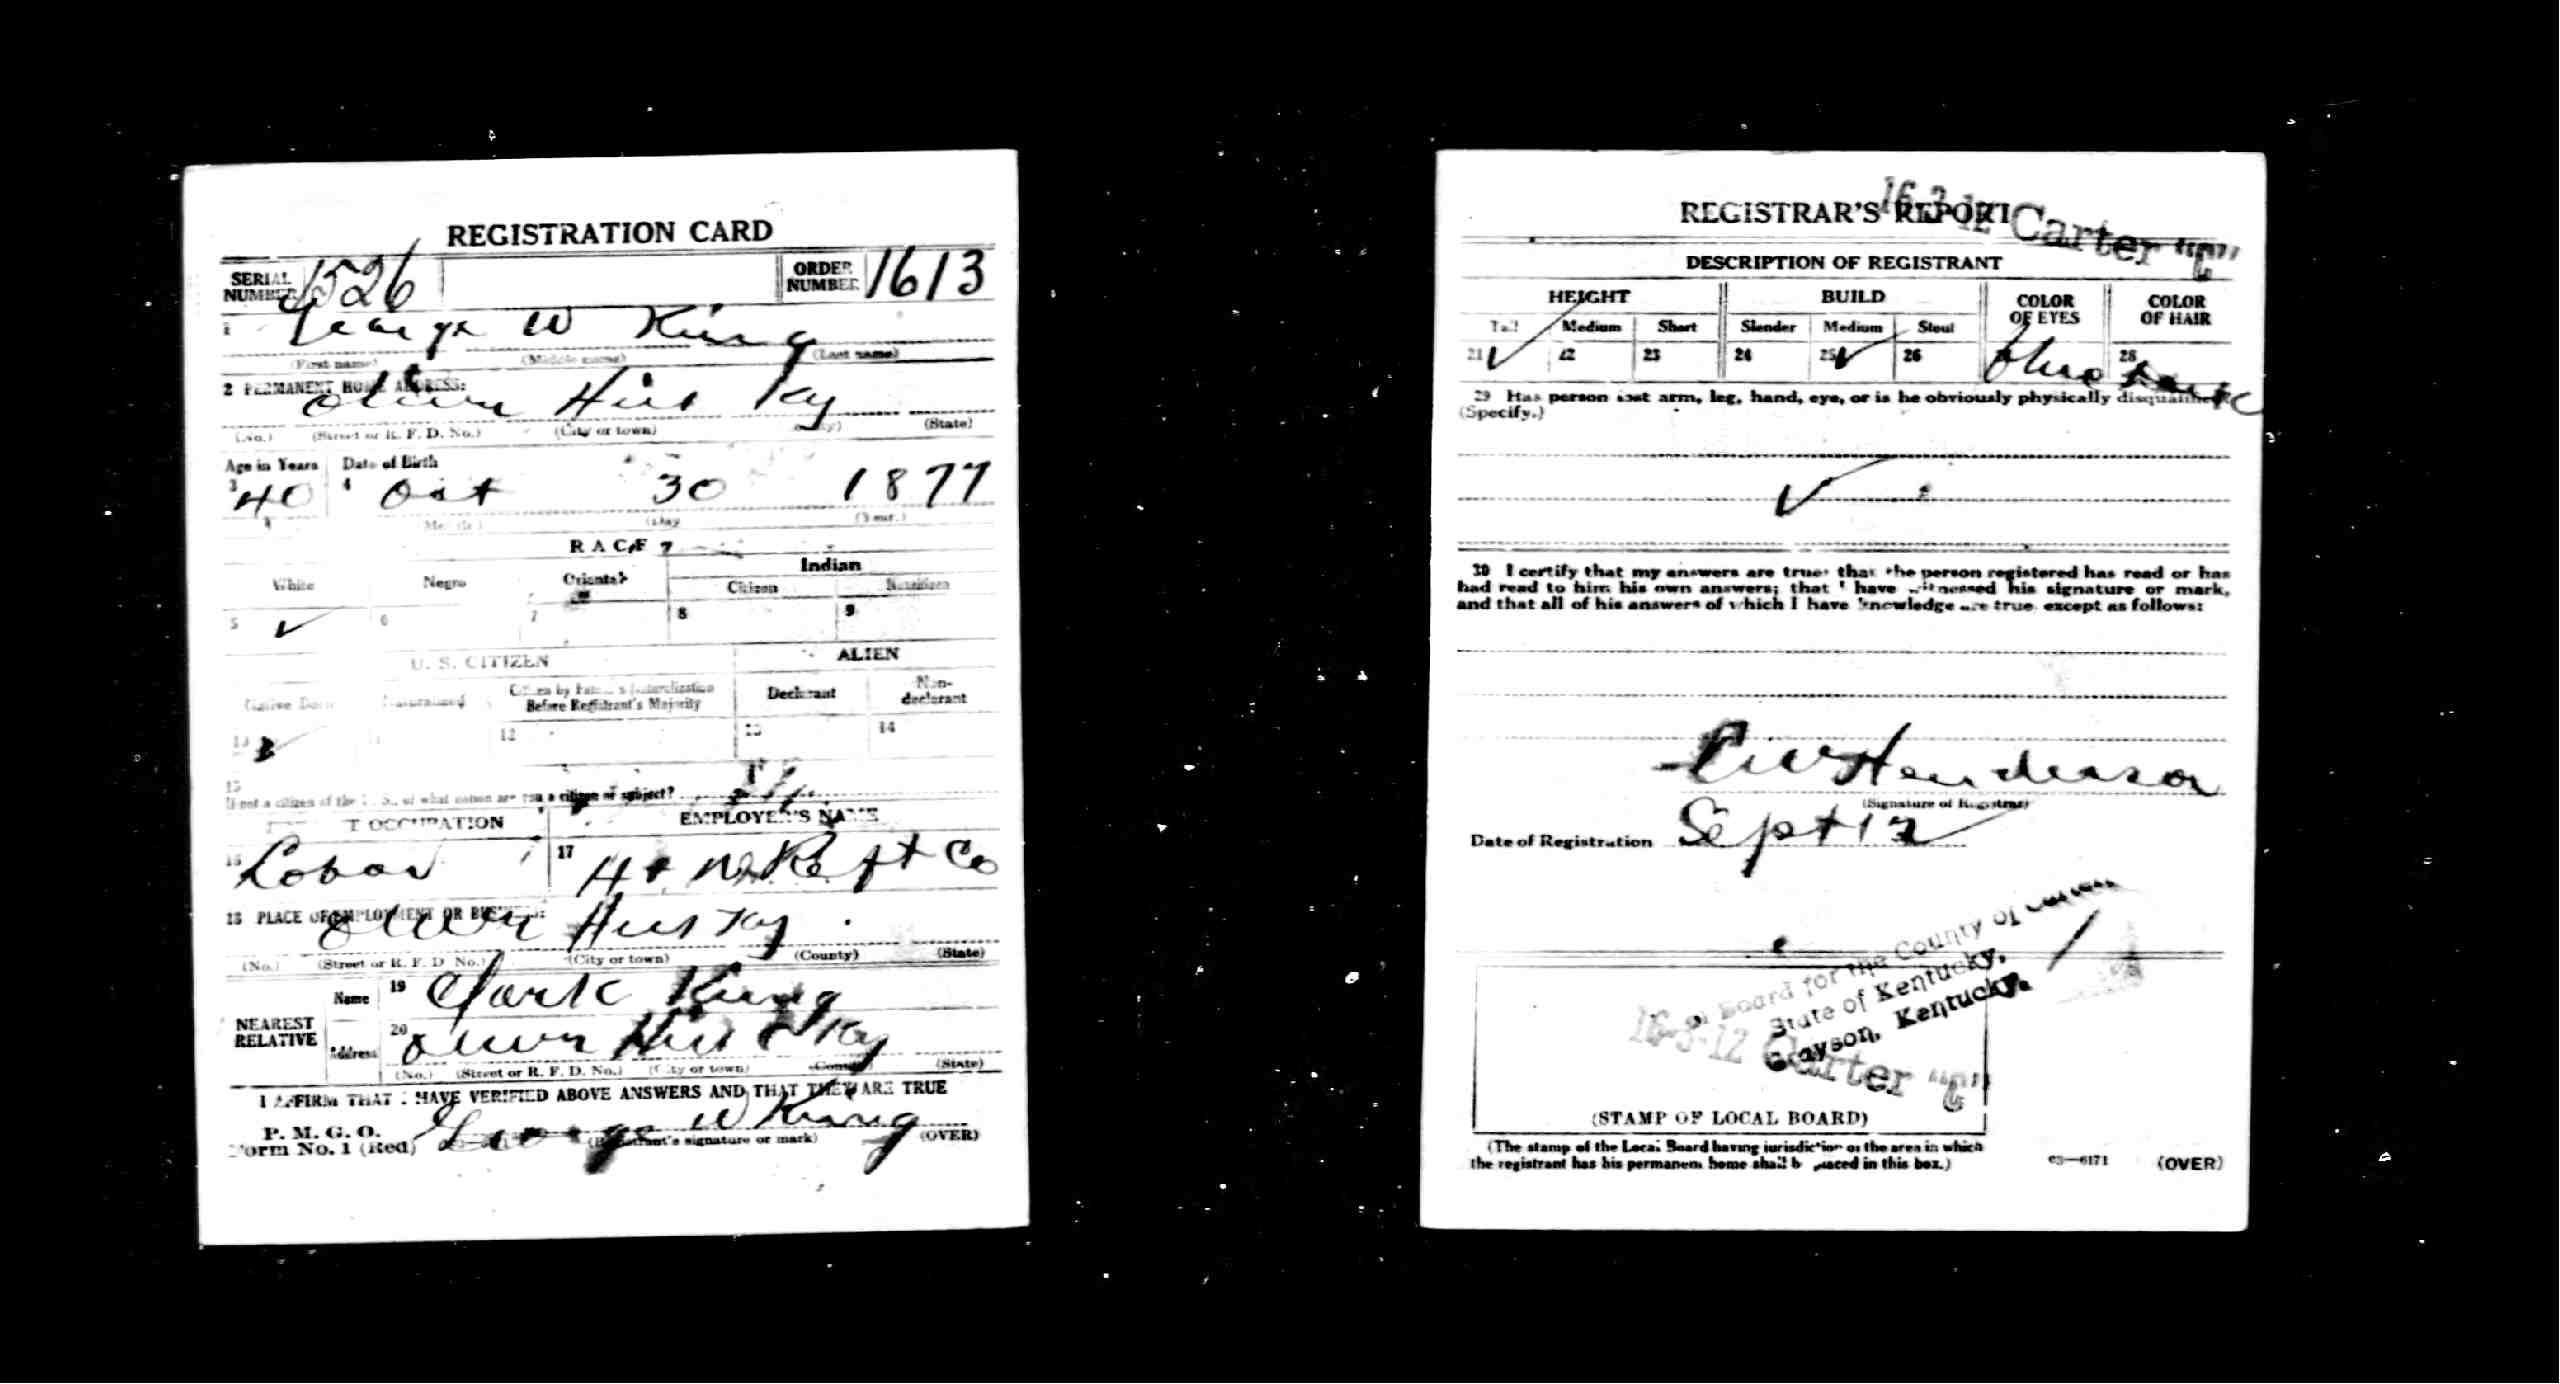 REGISTRATION CARD
SERIAL NUMBER 1526 ORDER NUMBER 1613
1 George W King
(First name) (Middle name) (Last name)
2 PERMANENT HOME ADDRESS:
Olive Hill Ky
(No.) (Street or R. F. D. No.) (City or town) (State)
Age in Years Date of Birth
3 40 4 Oct 30 1877
(Month.) (Day.) (Year.)
RACE
White Negro Oriental Indian
Citizen Noncitizen
5 ✓ 6 7 8 9
U. S. CITIZEN ALIEN
Native Born Naturalized Citizen by Father's Naturalization Before Registrant's Majority Declarant Non-declarant
10 ✓ 11 12 13 14
15
If not a citizen of the U. S., of what nation are you a citizen or subject?
PRESENT OCCUPATION EMPLOYER'S NAME
16 Labor 17 H & W Co
18 PLACE OF EMPLOYMENT OR BUSINESS:
Olive Hill Ky
(No.) (Street or R. F. D. No.) (City or town) (County) (State)
NEAREST RELATIVE Name 19 Clark King
Address 20 Olive Hill Ky
(No.) (Street or R. F. D. No.) (City or town) (County) (State)
I AFFIRM THAT I HAVE VERIFIED ABOVE ANSWERS AND THAT THEY ARE TRUE
P. M. G. O.
Form No. 1 (Red) George W King
(Registrant's signature or mark) (OVER)
REGISTRAR'S REPORT
16-3-12 Carter "C"
DESCRIPTION OF REGISTRANT
HEIGHT BUILD COLOR OF EYES COLOR OF HAIR
Tall Medium Short Slender Medium Stout
21 ✓ 22 23 24 25 ✓ 26 Blue 28 Dark
29 Has person lost arm, leg, hand, eye, or is he obviously physically disqualified?
(Specify.)
✓
30 I certify that my answers are true; that the person registered has read or has
had read to him his own answers; that I have witnessed his signature or mark,
and that all of his answers of which I have knowledge are true, except as follows:
Henderson
(Signature of Registrar)
Date of Registration Sept 12
Board for the County of Carter
State of Kentucky,
Grayson, Kentucky.
16-3-12 Carter "C"
(STAMP OF LOCAL BOARD)
(The stamp of the Local Board having jurisdiction of the area in which
the registrant has his permanent home shall be placed in this box.)
03—6171 (OVER)